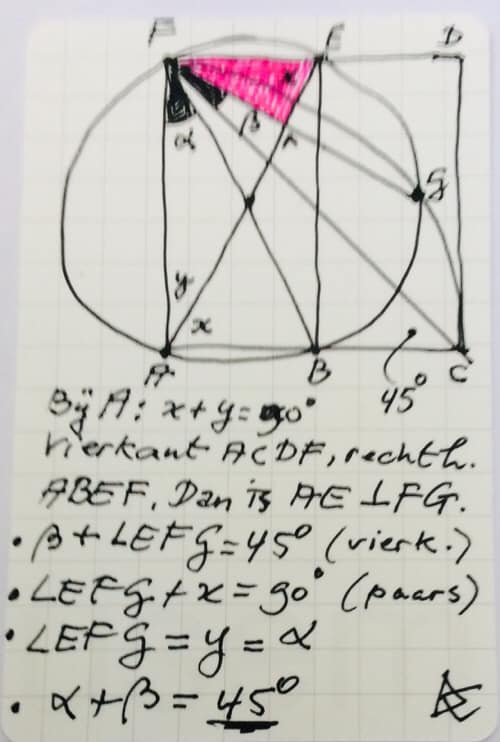 F E D
α β
G
y
x
A B C
45°
Bij A: x + y = 90°
Vierkant ACDF, rechth.
ABEF. Dan is AE ⊥ FG.
• β + ∠EFG = 45° (vierk.)
• ∠EFG + x = 90° (paars)
• ∠EFG = y = α
• α + β = 45°